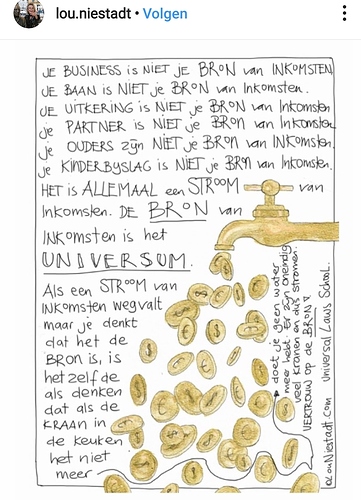 lou.niestadt • Volgen
JE BUSINESS is NIET JE BRON van INKOMSTEN.
JE BAAN is NIET je BRON van Inkomsten.
JE UITKERING is NIET je BRON van Inkomsten
je PARTNER is NIET je BRON van Inkomsten.
je OUDERS zijn NIET je BRON van INKOMSTEN.
je KINDERBYSLAG is NIET je BRON van Inkomsten.
HET is ALLEMAAL een STROOM van
Inkomsten. DE BRON van
INKOMSTEN is het
UNIVERSUM.
Als een STROOM van
INKOMSTEN wegvalt
maar je denkt
dat het de
BRON is, is
het zelfde
als denken
dat als de
KRAAN in
de keuken
het niet
meer
doet je geen water
meer hebt. Er zijn oneindig
veel kranen en dus stromen.
VERTROUW op de BRON
©LouNiestadt.com Universal Laws School.